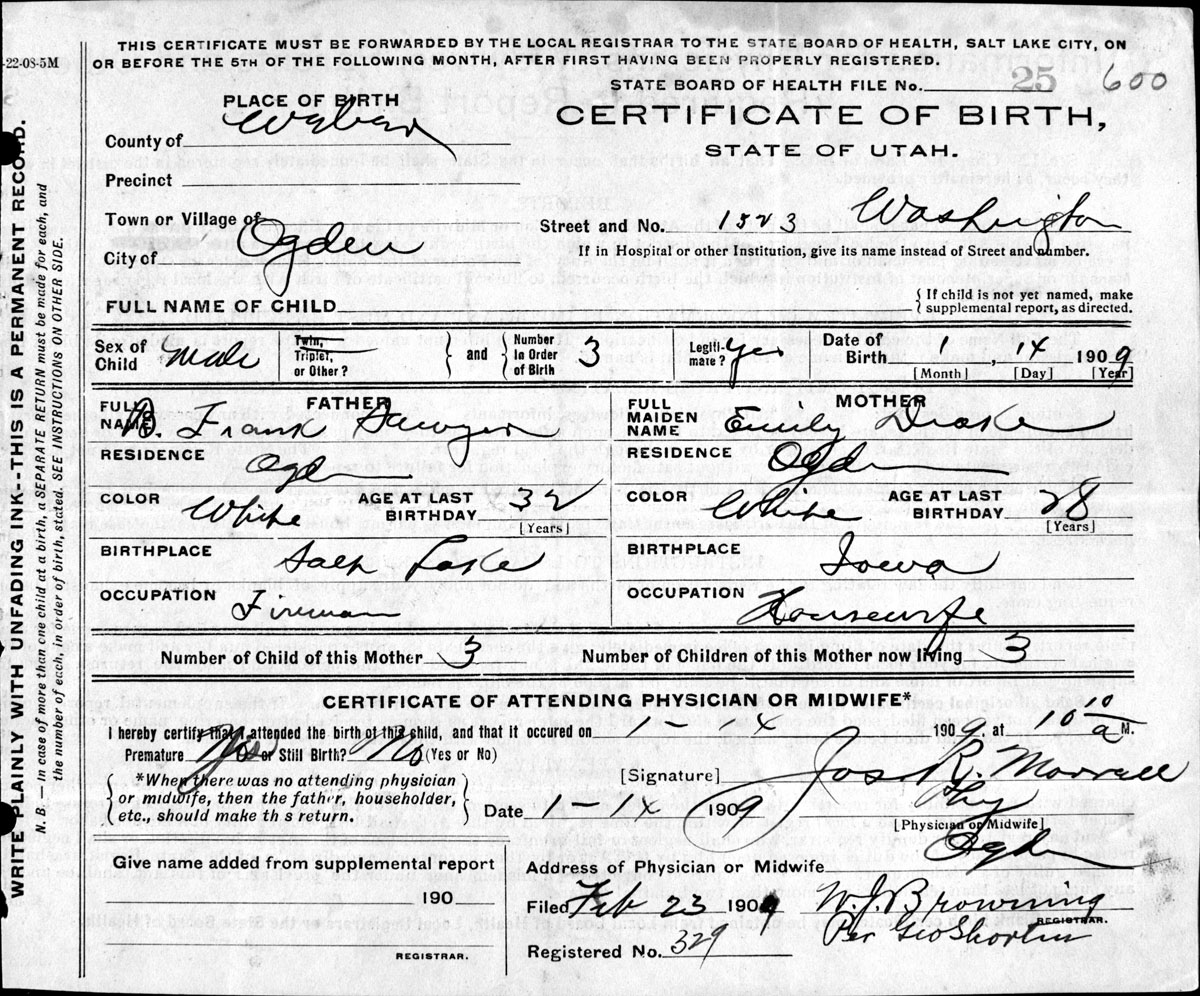 THIS CERTIFICATE MUST BE FORWARDED BY THE LOCAL REGISTRAR TO THE STATE BOARD OF HEALTH, SALT LAKE CITY, ON
OR BEFORE THE 5TH OF THE FOLLOWING MONTH, AFTER FIRST HAVING BEEN PROPERLY REGISTERED.
-22-08-5M
STATE BOARD OF HEALTH FILE No. 25 600
PLACE OF BIRTH
CERTIFICATE OF BIRTH,
STATE OF UTAH.
County of Weber
Precinct
Town or Village of
Street and No. 1523 Washington
City of Ogden
If in Hospital or other Institution, give its name instead of Street and number.
FULL NAME OF CHILD
{ If child is not yet named, make
supplemental report, as directed.
Sex of Child male
Twin, Triplet, or Other?
and Number in Order of Birth 3
Legitimate? yes
Date of Birth 1 14 1909
[Month] [Day] [Year]
FATHER
FULL NAME Frank Sawyer
RESIDENCE Ogd
COLOR White
AGE AT LAST BIRTHDAY 32
[Years]
BIRTHPLACE Salt Lake
OCCUPATION Fireman
MOTHER
FULL MAIDEN NAME Emily Drake
RESIDENCE Ogde
COLOR White
AGE AT LAST BIRTHDAY 28
[Years]
BIRTHPLACE Iowa
OCCUPATION Housewife
Number of Child of this Mother 3
Number of Children of this Mother now living 3
CERTIFICATE OF ATTENDING PHYSICIAN OR MIDWIFE*
I hereby certify that I attended the birth of this child, and that it occured on 1 14 1909, at 10 10 a M.
Premature Yes or Still Birth? No (Yes or No)
*When there was no attending physician
or midwife, then the father, householder,
etc., should make th s return.
[Signature] Jos R. Morrell
Phy
Date 1-14 1909
[Physician or Midwife]
Give name added from supplemental report
190
REGISTRAR.
Address of Physician or Midwife Ogd
Filed Feb 23 1909
W. J. Browning
REGISTRAR.
Per Geo Shorten
Registered No. 329
WRITE PLAINLY WITH UNFADING INK--THIS IS A PERMANENT RECORD.
N. B.—In case of more than one child at a birth, a SEPARATE RETURN must be made for each, and
the number of each, in order of birth, stated. SEE INSTRUCTIONS ON OTHER SIDE.